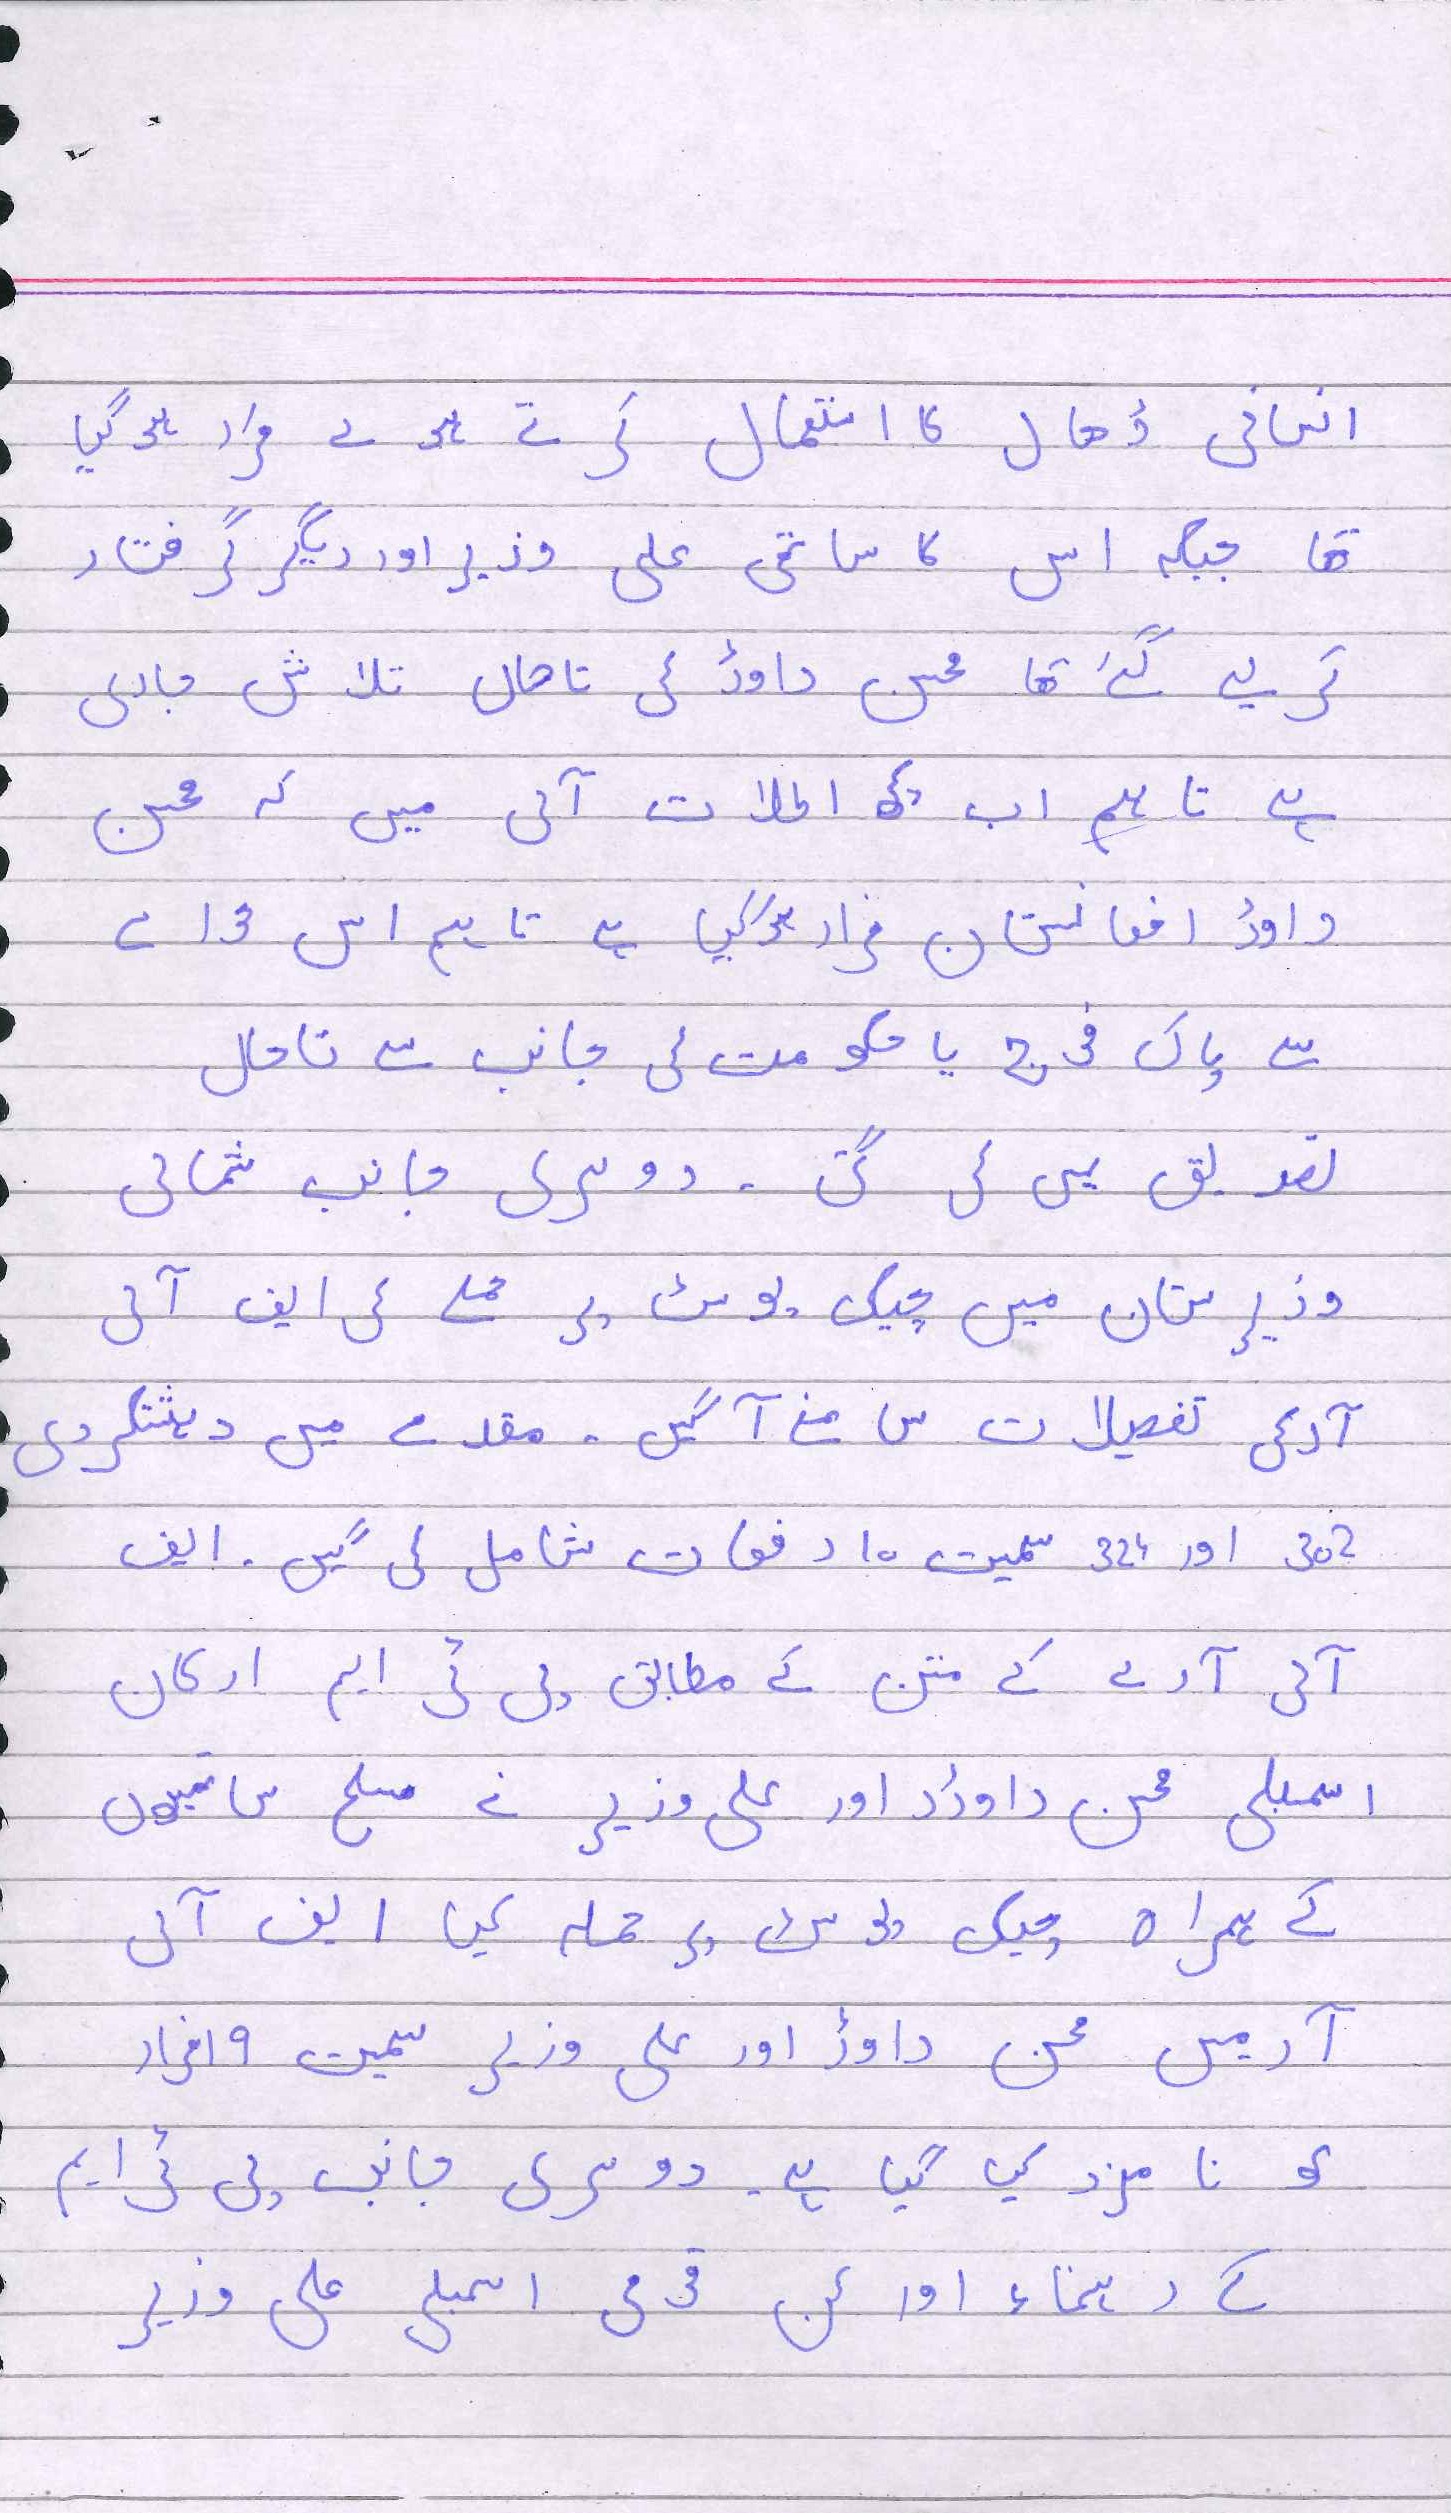 انسانی ڈھال کا استعمال کرتے ہوے فرار ہوگیا
تھا جبکہ اس کا ساتھی علی وزیر اور دیگر گرفتار
کر لیے گئے تھا محسن داوڑ کی تاحال تلاش جاری
ہے تاہم اب کچھ اطلاعات آئی ہیں کہ محسن
داوڑ افغانستان فرار ہوگیا ہے تاہم اس حوالے
سے پاک فوج یا حکومت کی جانب سے تاحال
تصدیق نہیں کی گئی ۔ دوسری جانب شمالی
وزیرستان میں چیک پوسٹ پر حملے کی ایف آئی
آر کی تفصیلات سامنے آگئیں ۔ مقدمے میں دہشتگردی
302 اور 324 سمیت 10 دفعات شامل کی گئیں ۔ ایف
آئی آر کے متن کے مطابق پی ٹی ایم ارکان
اسمبلی محسن داوڑ اور علی وزیر نے مسلح ساتھیوں
کے ہمراہ چیک پوسٹ پر حملہ کیا ایف آئی
آر میں محسن داوڑ اور علی وزیر سمیت 9 افراد
کو نامزد کیا گیا ہے۔ دوسری جانب پی ٹی ایم
کے رہنماء اور رکن قومی اسمبلی علی وزیر